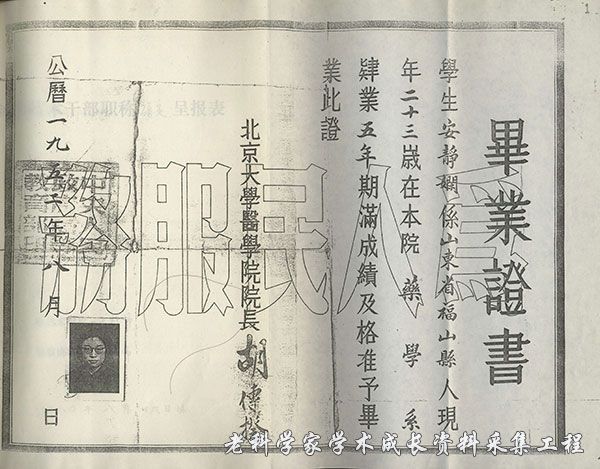 畢業證書
學生安靜嫻係山東省福山縣人現
年二十三歲在本院藥學系
肄業五年期滿成績及格准予畢
業此證
北京大學醫學院院長胡傳揆
公曆一九五〇年八月 日
為人民服務
干部职称 呈报表
老科学家学术成长资料采集工程